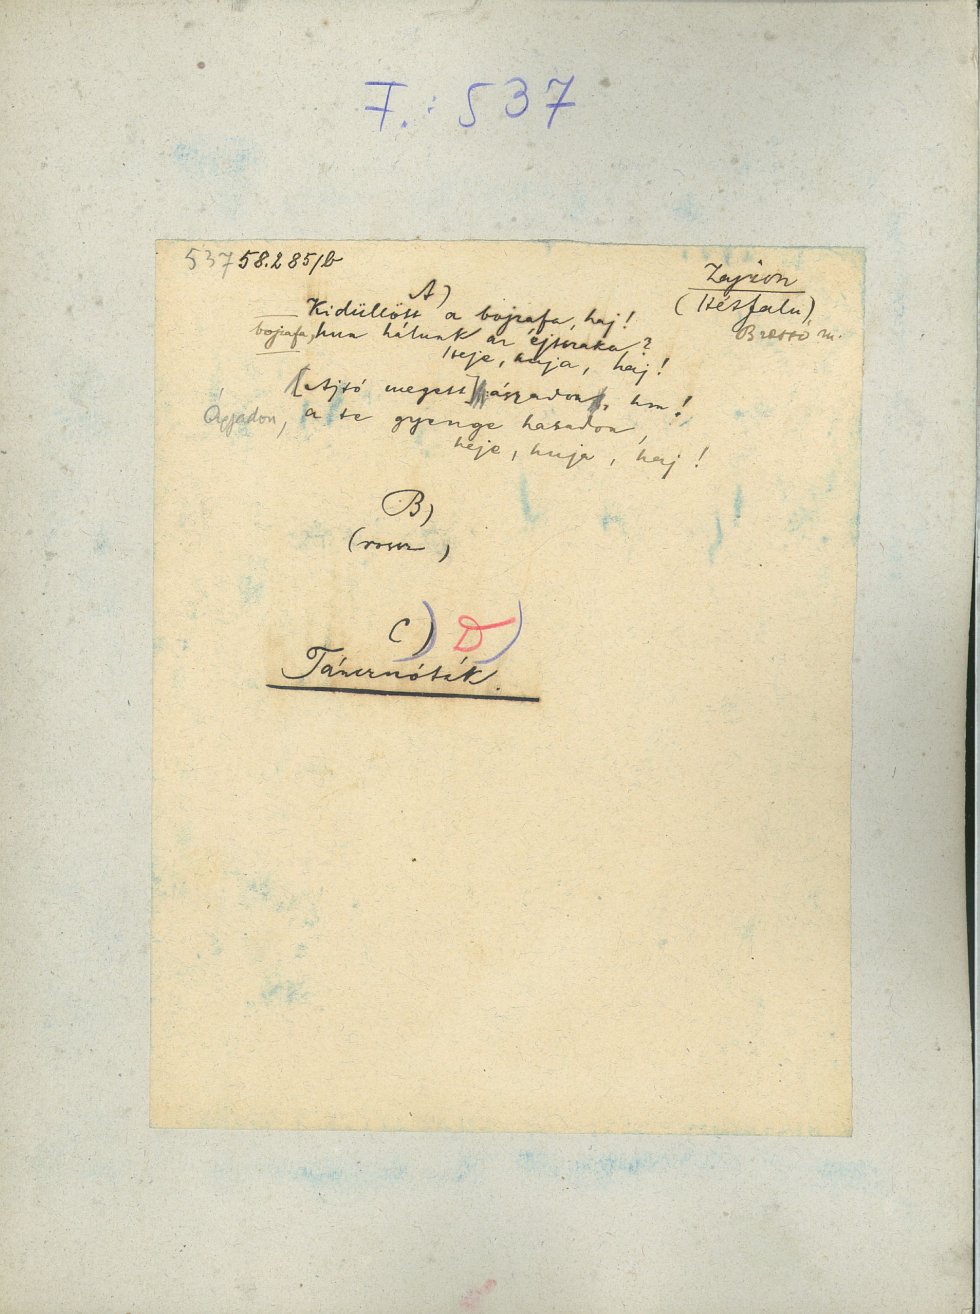 F.: 537
537 58.285/b
Zajzon
(Hétfalu)
Brassó m.
A)
Kidüllött a bojzafa, haj!
bojzafa, hun hálunk az éjtszaka?
heje, huja, haj!
[Ajtó megett] ászadon, hm!
Ágyadon, a te gyenge hasadon,
heje, huja, haj!
B)
(rossz)
C) D)
Táncznóták.